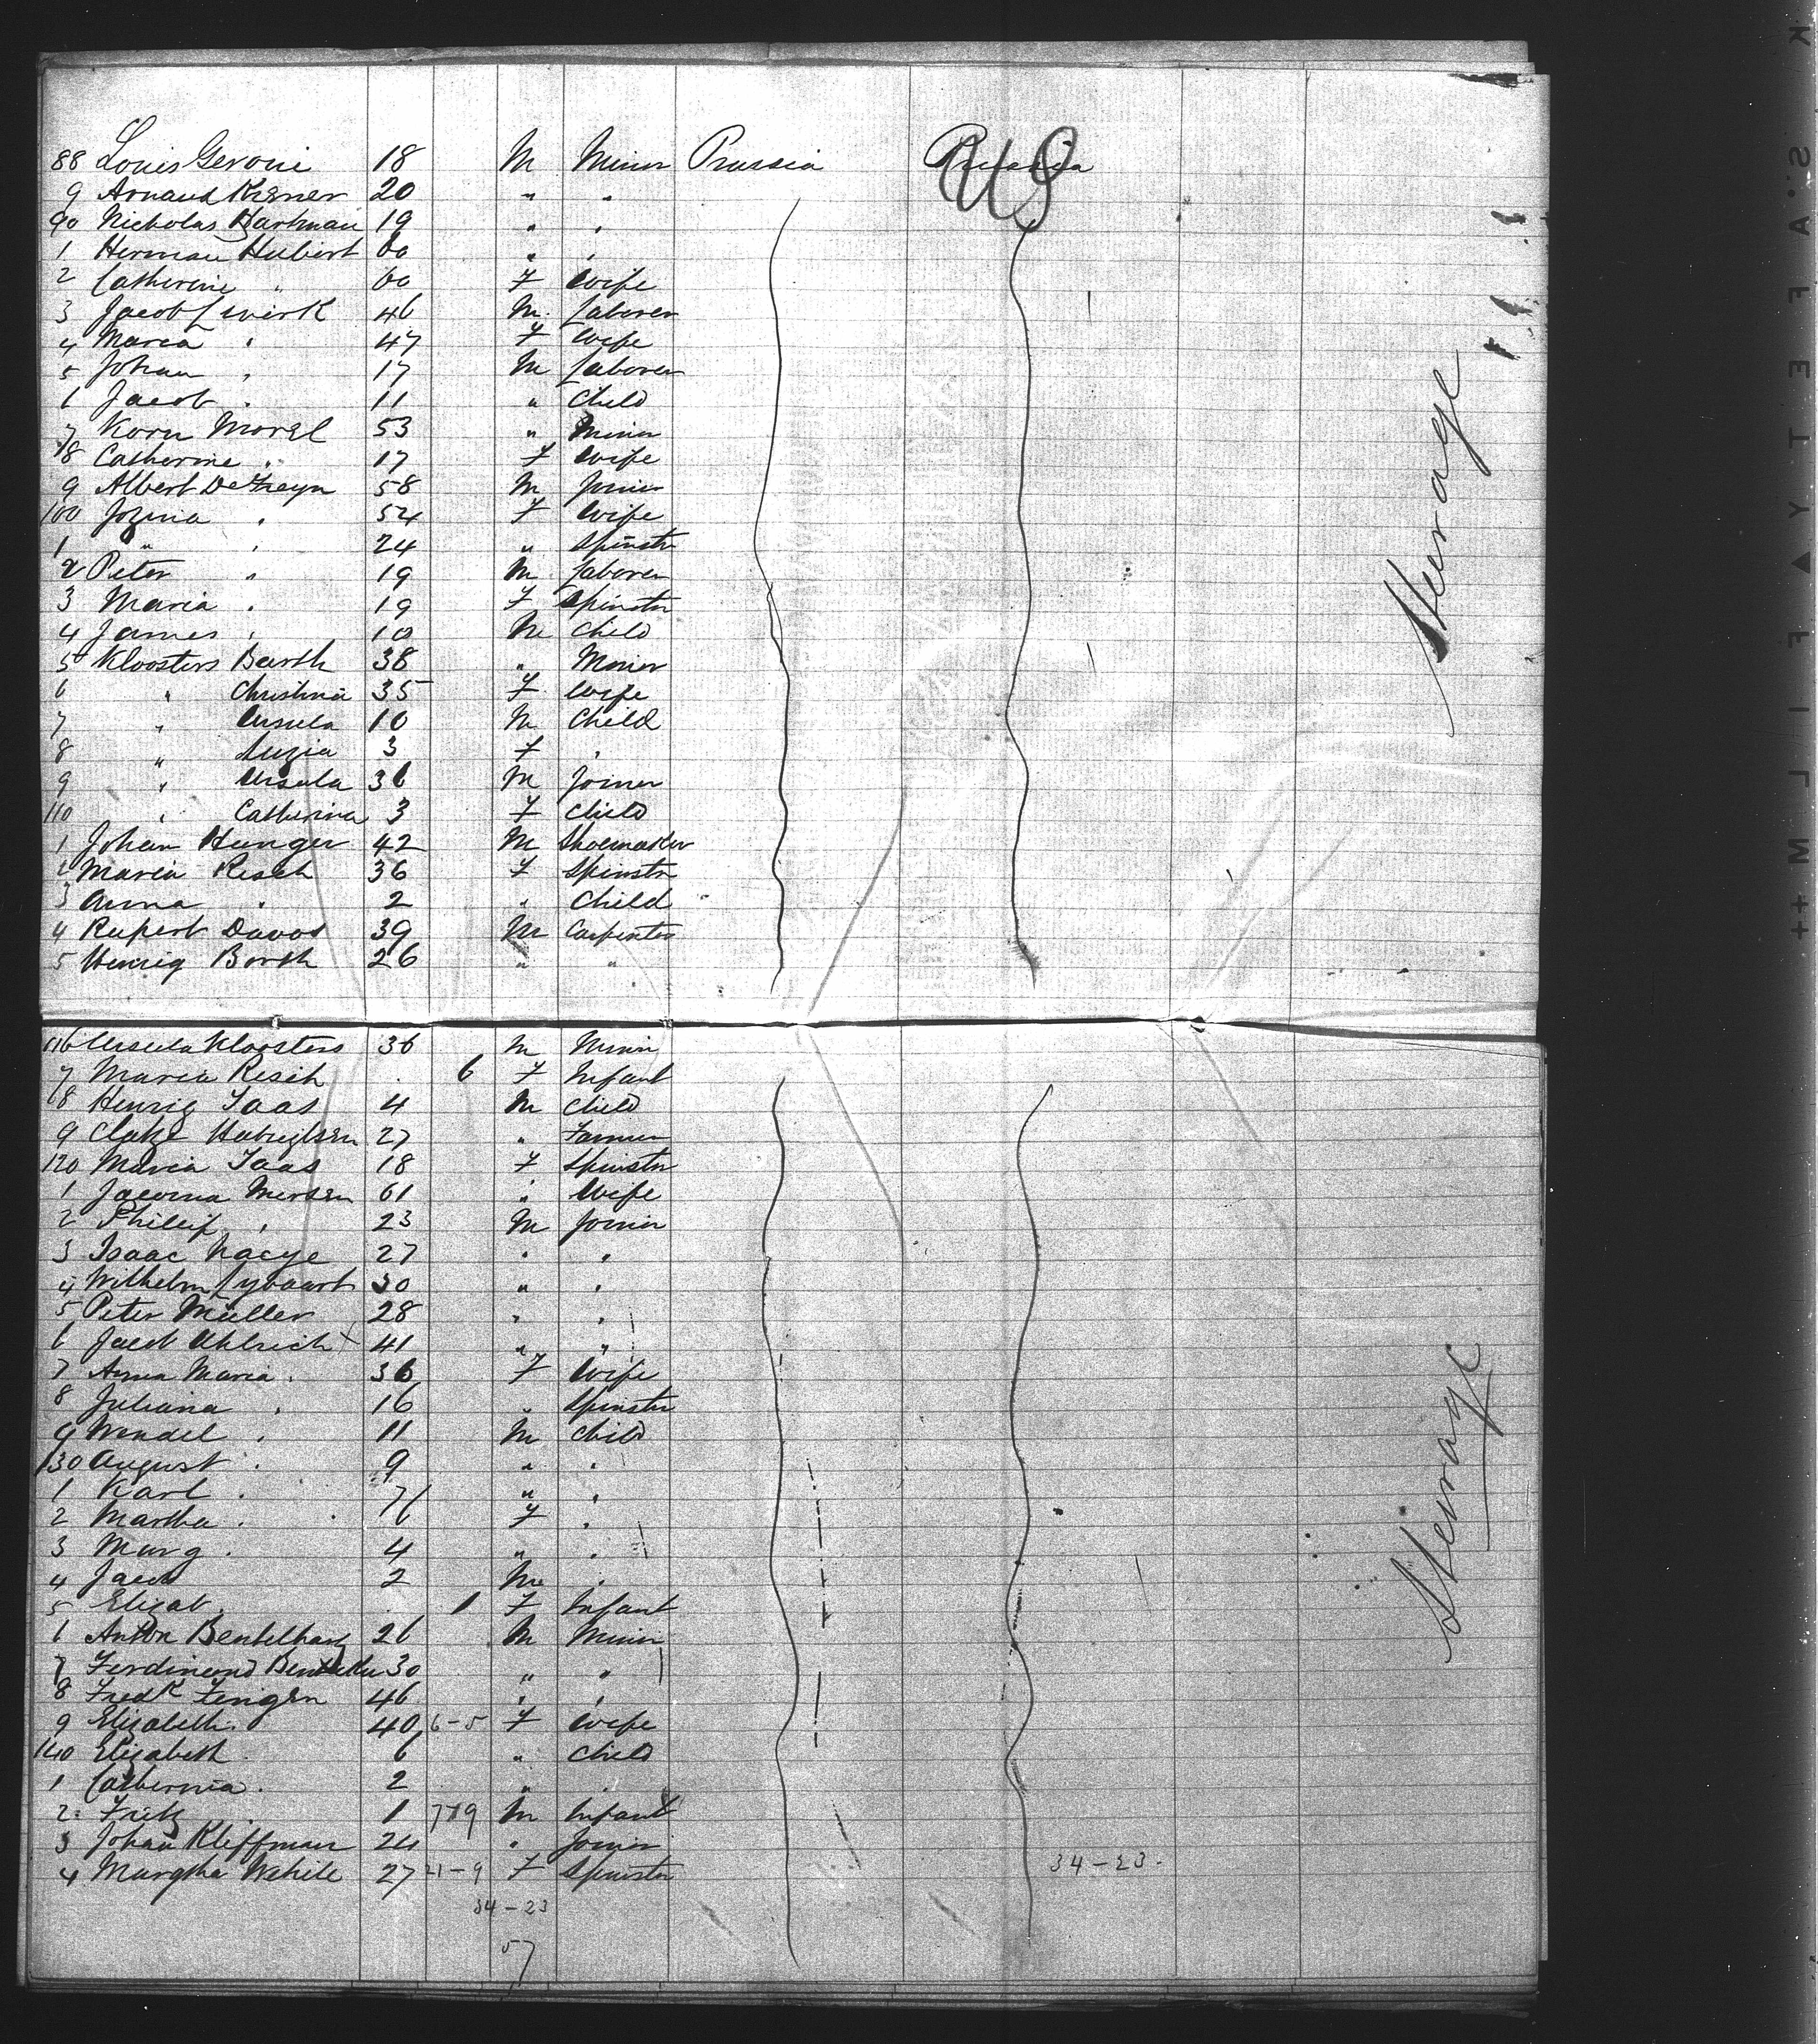 88 Louis Geroni 18 M Miner Prussia Prussia US
9 Arnaud Kremer 20 " "
90 Nicholas Hartman 19 " "
1 Herman Hubert 60 " "
2 Catherine " 60 F Wife
3 Jacob Zwirk 46 M. Laborer
4 Maria " 47 F Wife
5 Johan " 17 M Laborer
6 Jacob " 11 " Child
7 Korn Morel 53 " Miner
98 Catherine " 17 F Wife
9 Albert DeFreyn 58 M Joiner
100 Jozina " 54 F Wife
1 " " 24 " Spinstr
2 Peter " 19 M Laborer
3 Maria " 19 F Spinstr
4 James " 10 M Child
5 Kloosters Barth 38 " Miner
6 " Christina 35 F Wife
7 " Ursula 10 M Child
8 " Luzia 3 F "
9 " Ursula 36 M Joiner
110 " Catherina 3 F Child
1 Johan Hunger 42 M Shoemaker
2 Maria Risch 36 F Spinstr
3 Anna " 2 " Child
4 Rupert Davos 39 M Carpenter
5 Henrig Borth 26 " "
Steerage
116 Ursula Kloosters 36 M Miner
7 Maria Risch 6 F Infant
18 Henrig Taas 4 M Child
9 27 " Farmer
120 Maria Taas 18 F Spinstr
1 Jacoma Mersen 61 " Wife
2 Phillip " 23 M Joiner
3 Isaac Nacye 27 " "
4 Wilhelm Lybaart 30 " "
5 Peter Müller 28 " "
6 Jacob Uhlrich 41 " "
7 Anna Maria " 36 F Wife
8 Juliana " 16 " Spinstr
9 Wendel " 11 M Child
130 August " 9 " "
1 Karl " 7 " "
2 Martha " 6 F "
3 Marg " 4 " "
4 Jacob 2 M "
5 Elizab. 1 F Infant
6 Anton Bentelhary 26 M Miner
7 Ferdinand 30 " "
8 Fredk Fengen 46 " "
9 Elizabeth " 40 6-5 F Wife
140 Elizabeth " 6 " Child
1 Catherina " 2 " "
2 Fritz 1 7+9 M Infant
3 Johan Kliffman 24 " Joiner
4 Margtha Wehile 27 21-9 F Spinstr 34-23.
34-23
57
Steerage